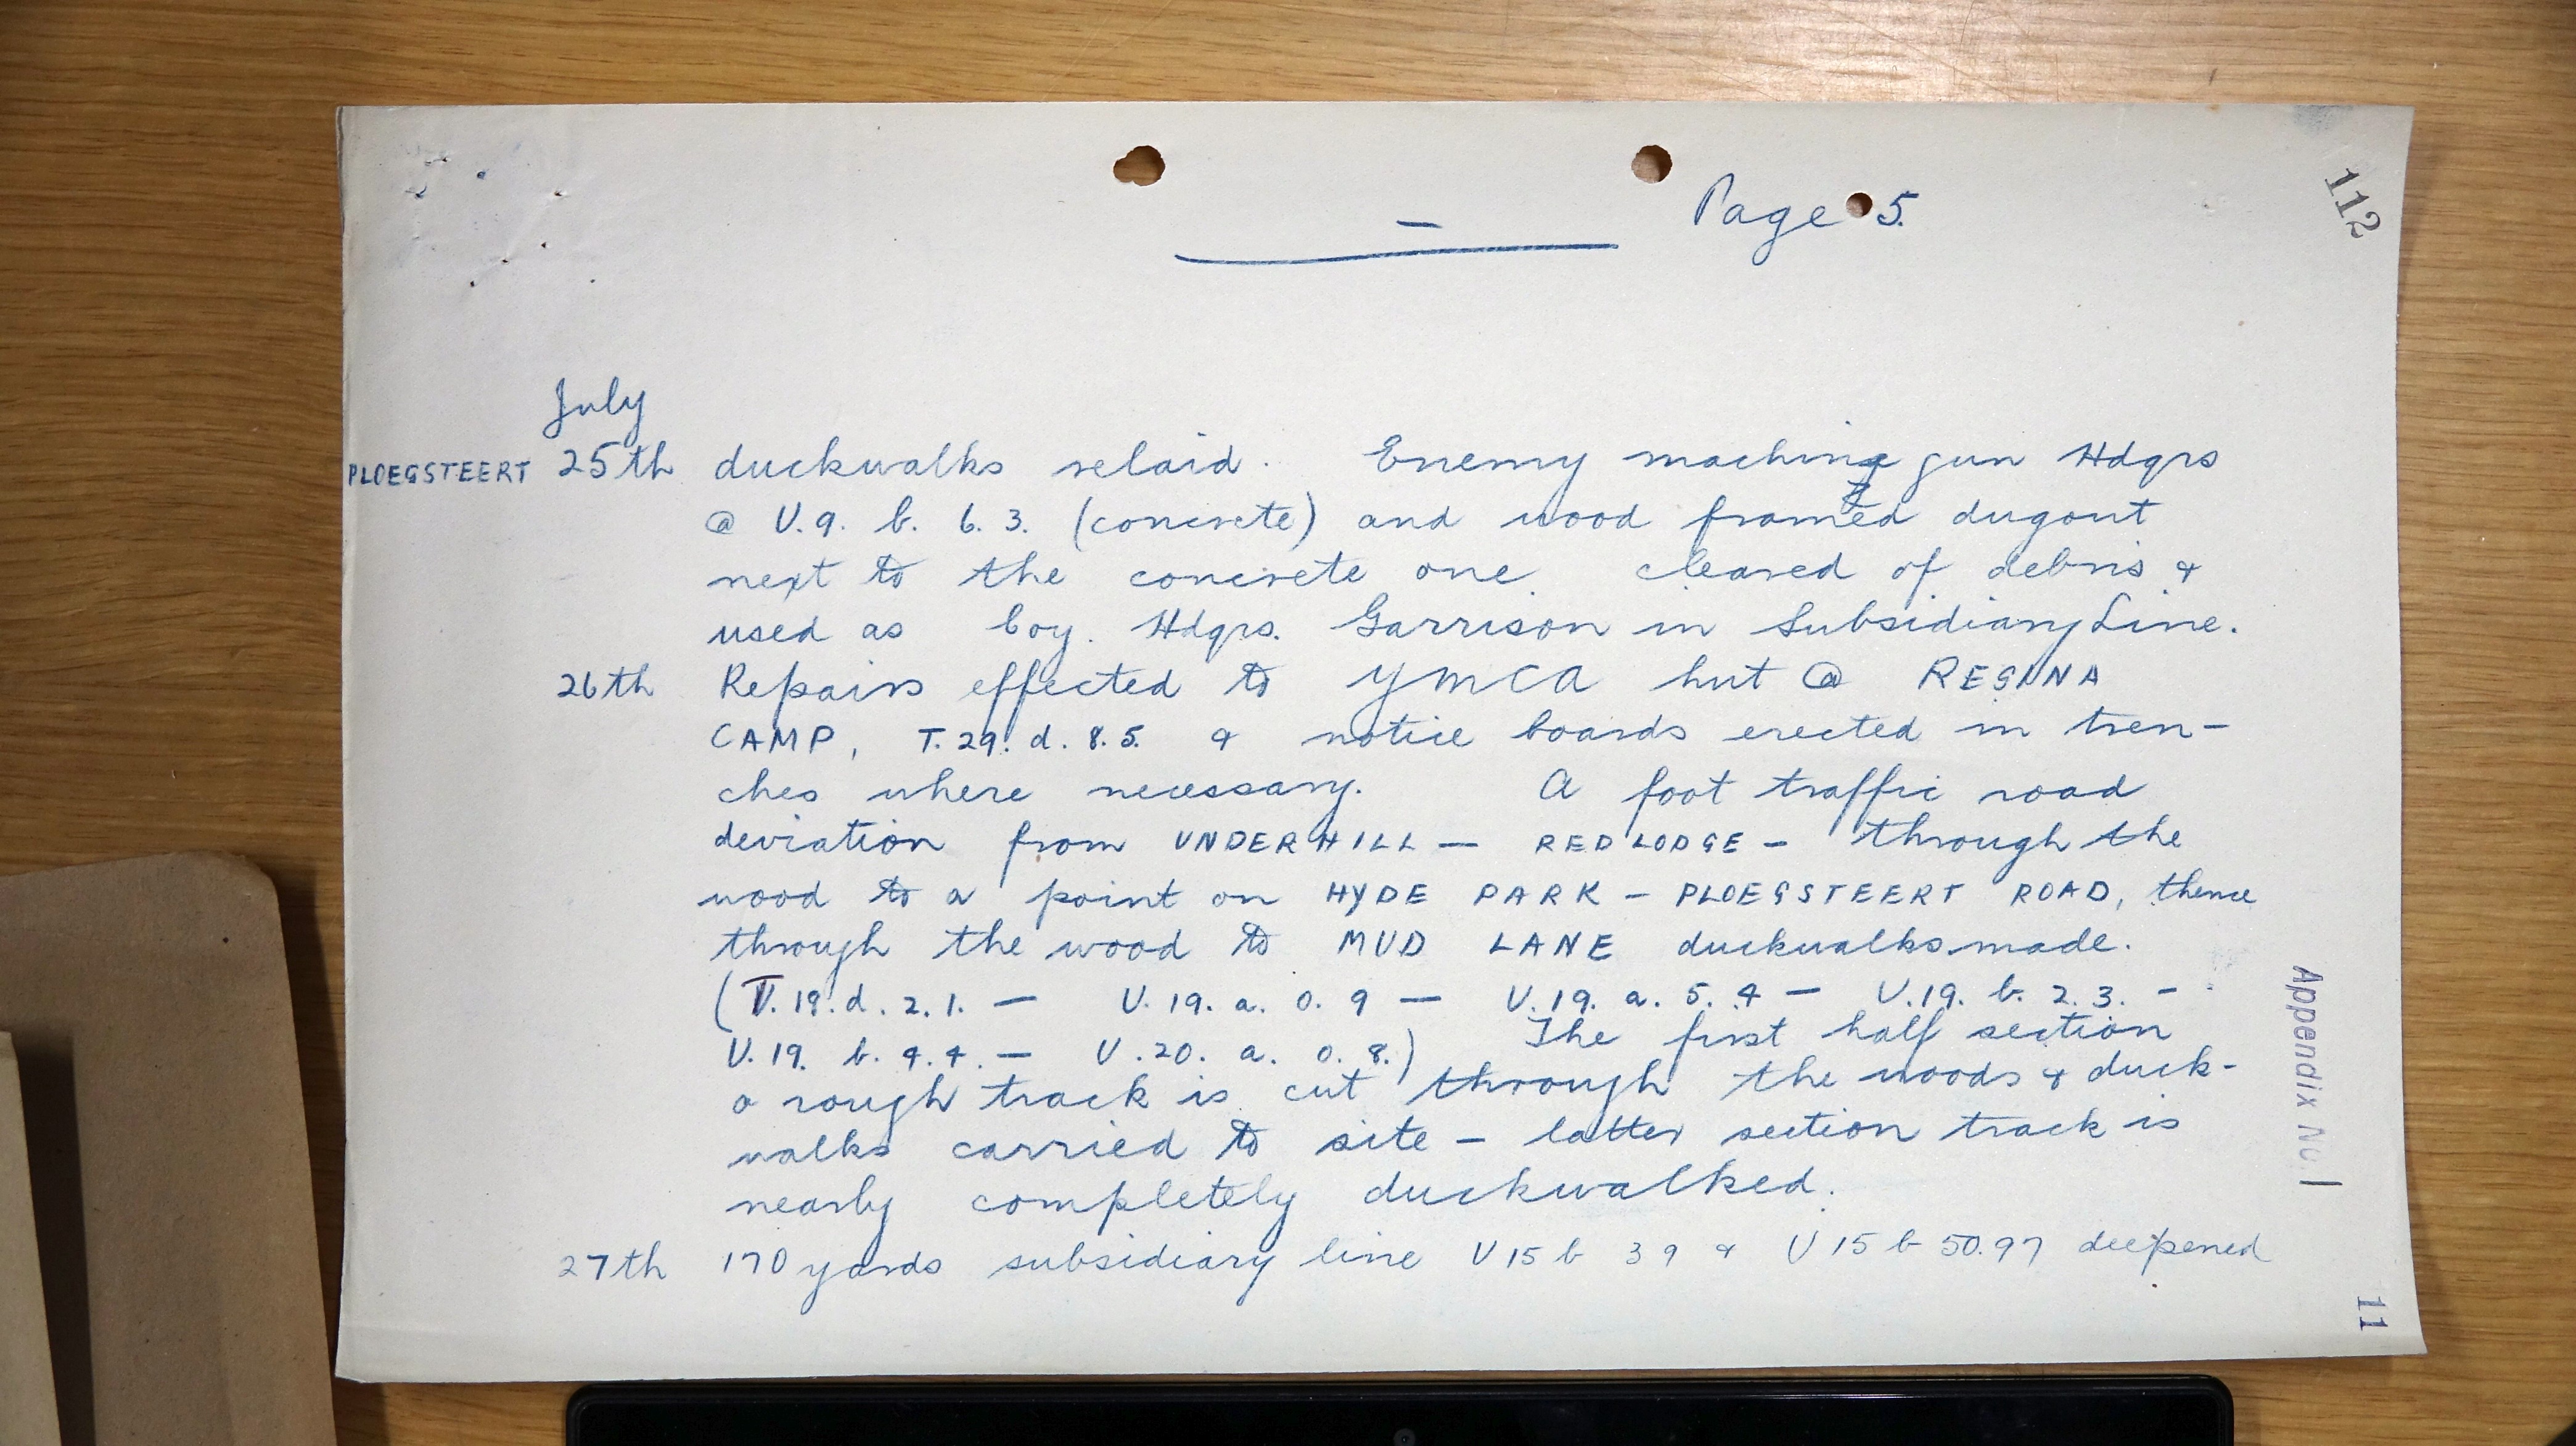 Page 5.
112
July
PLOEGSTEERT 25th duckwalks relaid. Enemy machine gun Hdqrs
@ U.9. b. 6. 3. (concrete) and wood framed dugout
next to the concrete one cleared of debris &
used as Coy. Hdqrs. Garrison in Subsidiary Line.
26th Repairs effected to YMCA hut @ REGINA
CAMP, T. 29. d. 8. 5. & notice boards erected in tren-
ches where necessary. A foot traffic road
deviation from UNDERHILL — RED LODGE — through the
wood to a point on HYDE PARK – PLOEGSTEERT ROAD, thence
through the wood to MUD LANE duckwalks made.
(T. 18. d. 2. 1. — U. 19. a. 0. 9 — U. 19. a. 5. 4 — U. 19. b. 2. 3. -
U. 19. b. 4. 4. — U. 20. a. 0. 8.) The first half section
a rough track is cut through the woods & duck-
walks carried to site – latter section track is
nearly completely duckwalked.
27th 170 yards subsidiary line U 15 b 39 & U 15 b 50.97 deepened
Appendix No. 1
11